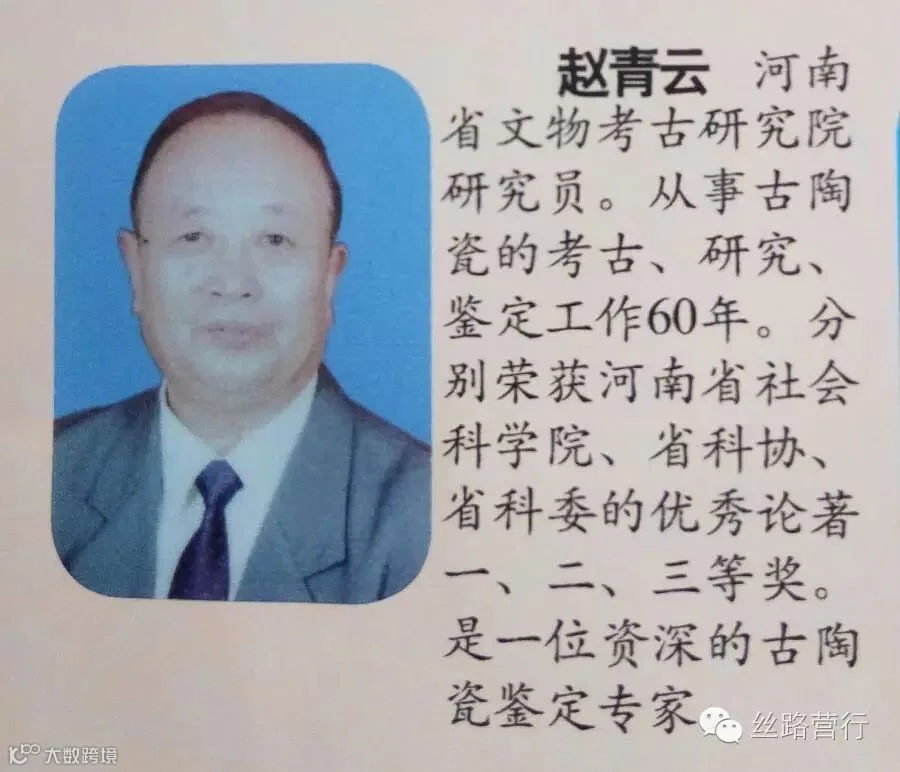 赵青云 河南
省文物考古研究院
研究员。从事古陶
瓷的考古、研究、
鉴定工作60年。分
别荣获河南省社会
科学院、省科协、
省科委的优秀论著
一、二、三等奖。
是一位资深的古陶
瓷鉴定专家
丝路营行
大数跨境